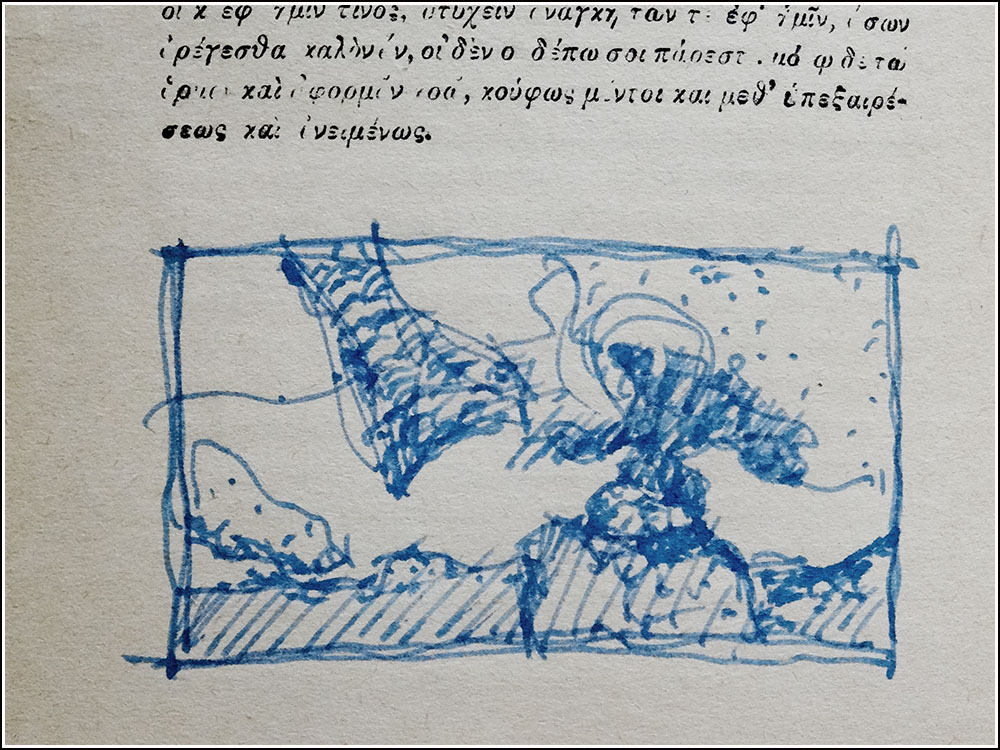 τινος, ἀτυχεῖν ἀνάγκη, τῶν ἐφ' ἡμῖν, ὅσων
ὀρέγεσθαι καλὸν ἄν, οὐδὲν οὐδέπω σοι πάρεστι.
καὶ ἀφορμᾶν κούφως μέντοι καὶ μεθ' ὑπεξαιρέ-
σεως καὶ ἀνειμένως.